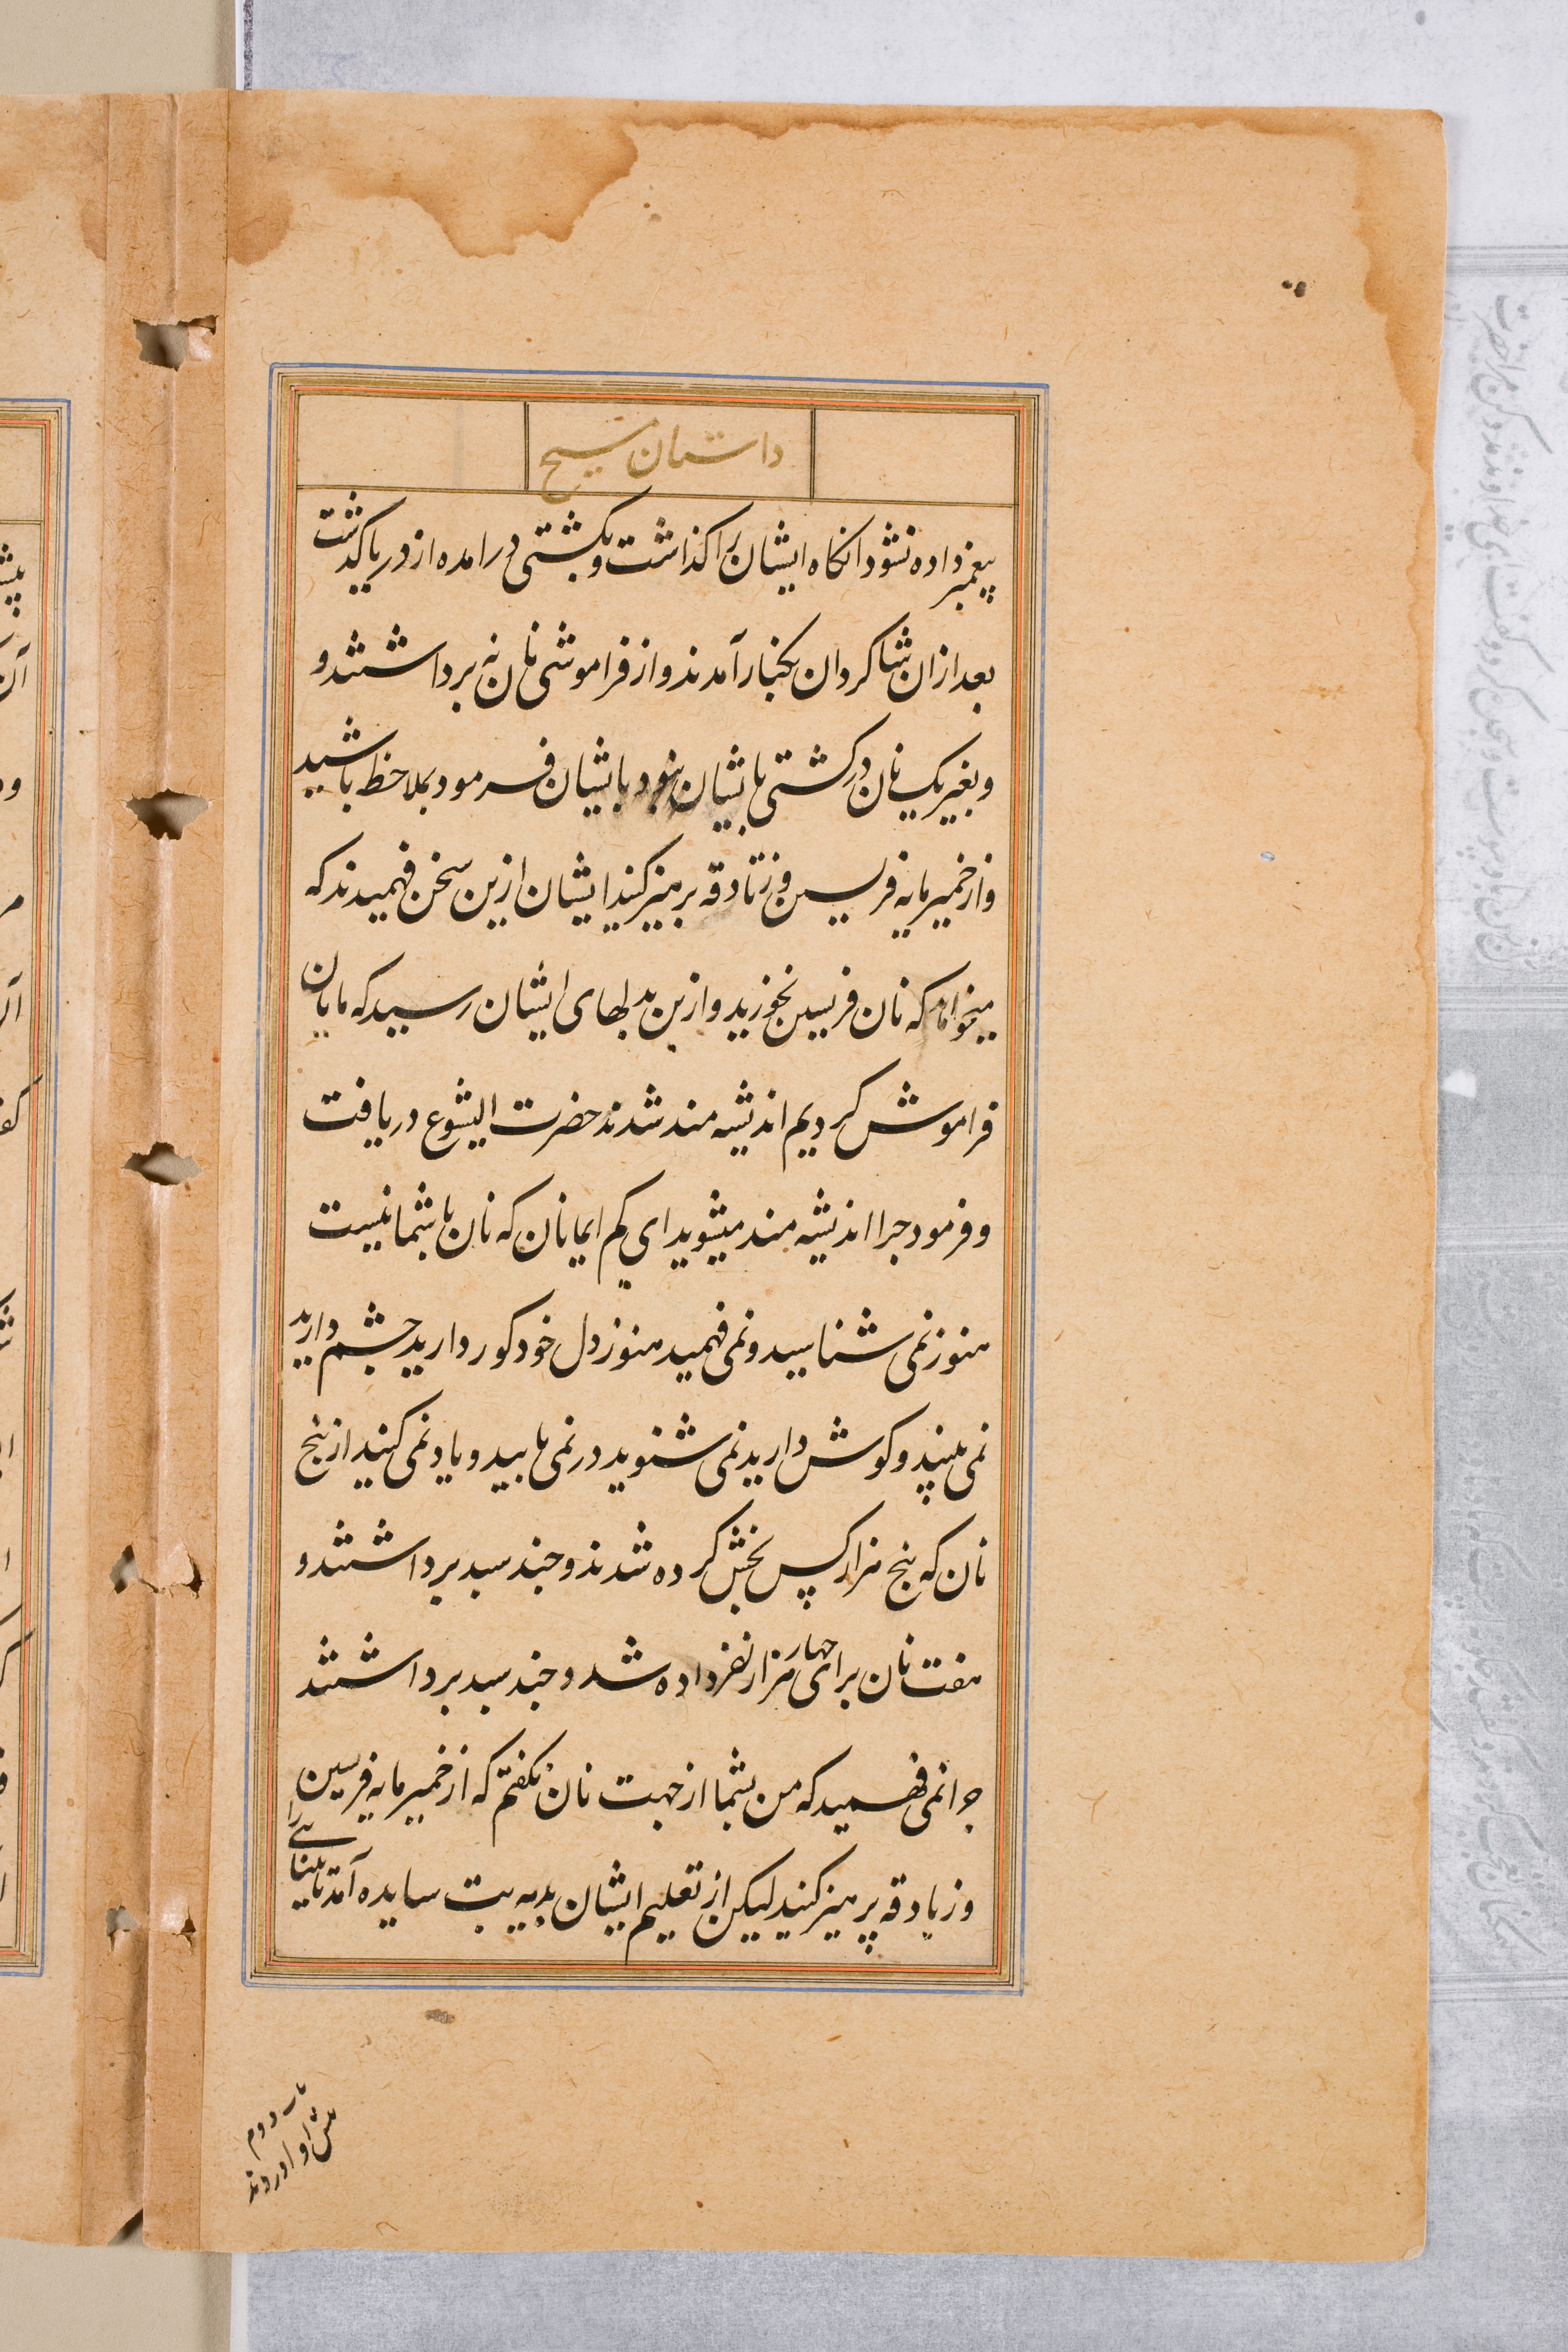 داستان مسیح
پیغمبر داده نشود انکاه ایشان را کذاشت و بکشتی درامده از دریا کذشت
بعد ازان شاکردان بکنار آمدند و از فراموشی نان نه برداشتند و
و بغیر یک نان در کشتی با یشان نبود بایشان فرمود بملاحظ باشید
و از خمیر مایه فریسین و زنادقه پرهیز کنید ایشان ازین سخن فهمیدند که
میخواهد که نان فریسین نخورید و ازین بدلهای ایشان رسید که مایان
فراموش کردیم اندیشه مند شدند حضرت ایشوع دریافت
و فرمود چرا اندیشه مند میشوید ای کم ایمانان که نان با شما نیست
هنوز نمی شناسید و نمی فهمید هنوز دل خود کور دارید چشم دارید
نمی بینید و کوش دارید نمی شنوید در نمی یابید و یاد نمی کنید از پنج
نان که پنج هزار کس بخش کرده شدند و چند سبد برداشتند و
هفت نان برای چهار هزار نفر داده شد و چند سبد برداشتند
چرا نمی فهمید که من بشما از جهت نان نکفتم که از خمیر مایه فریسین
و زنادقه پرهیز کنید لیکن از تعلیم ایشان به بیت سایده آمد نابینایی را
باب دوم
پیش او اوردند